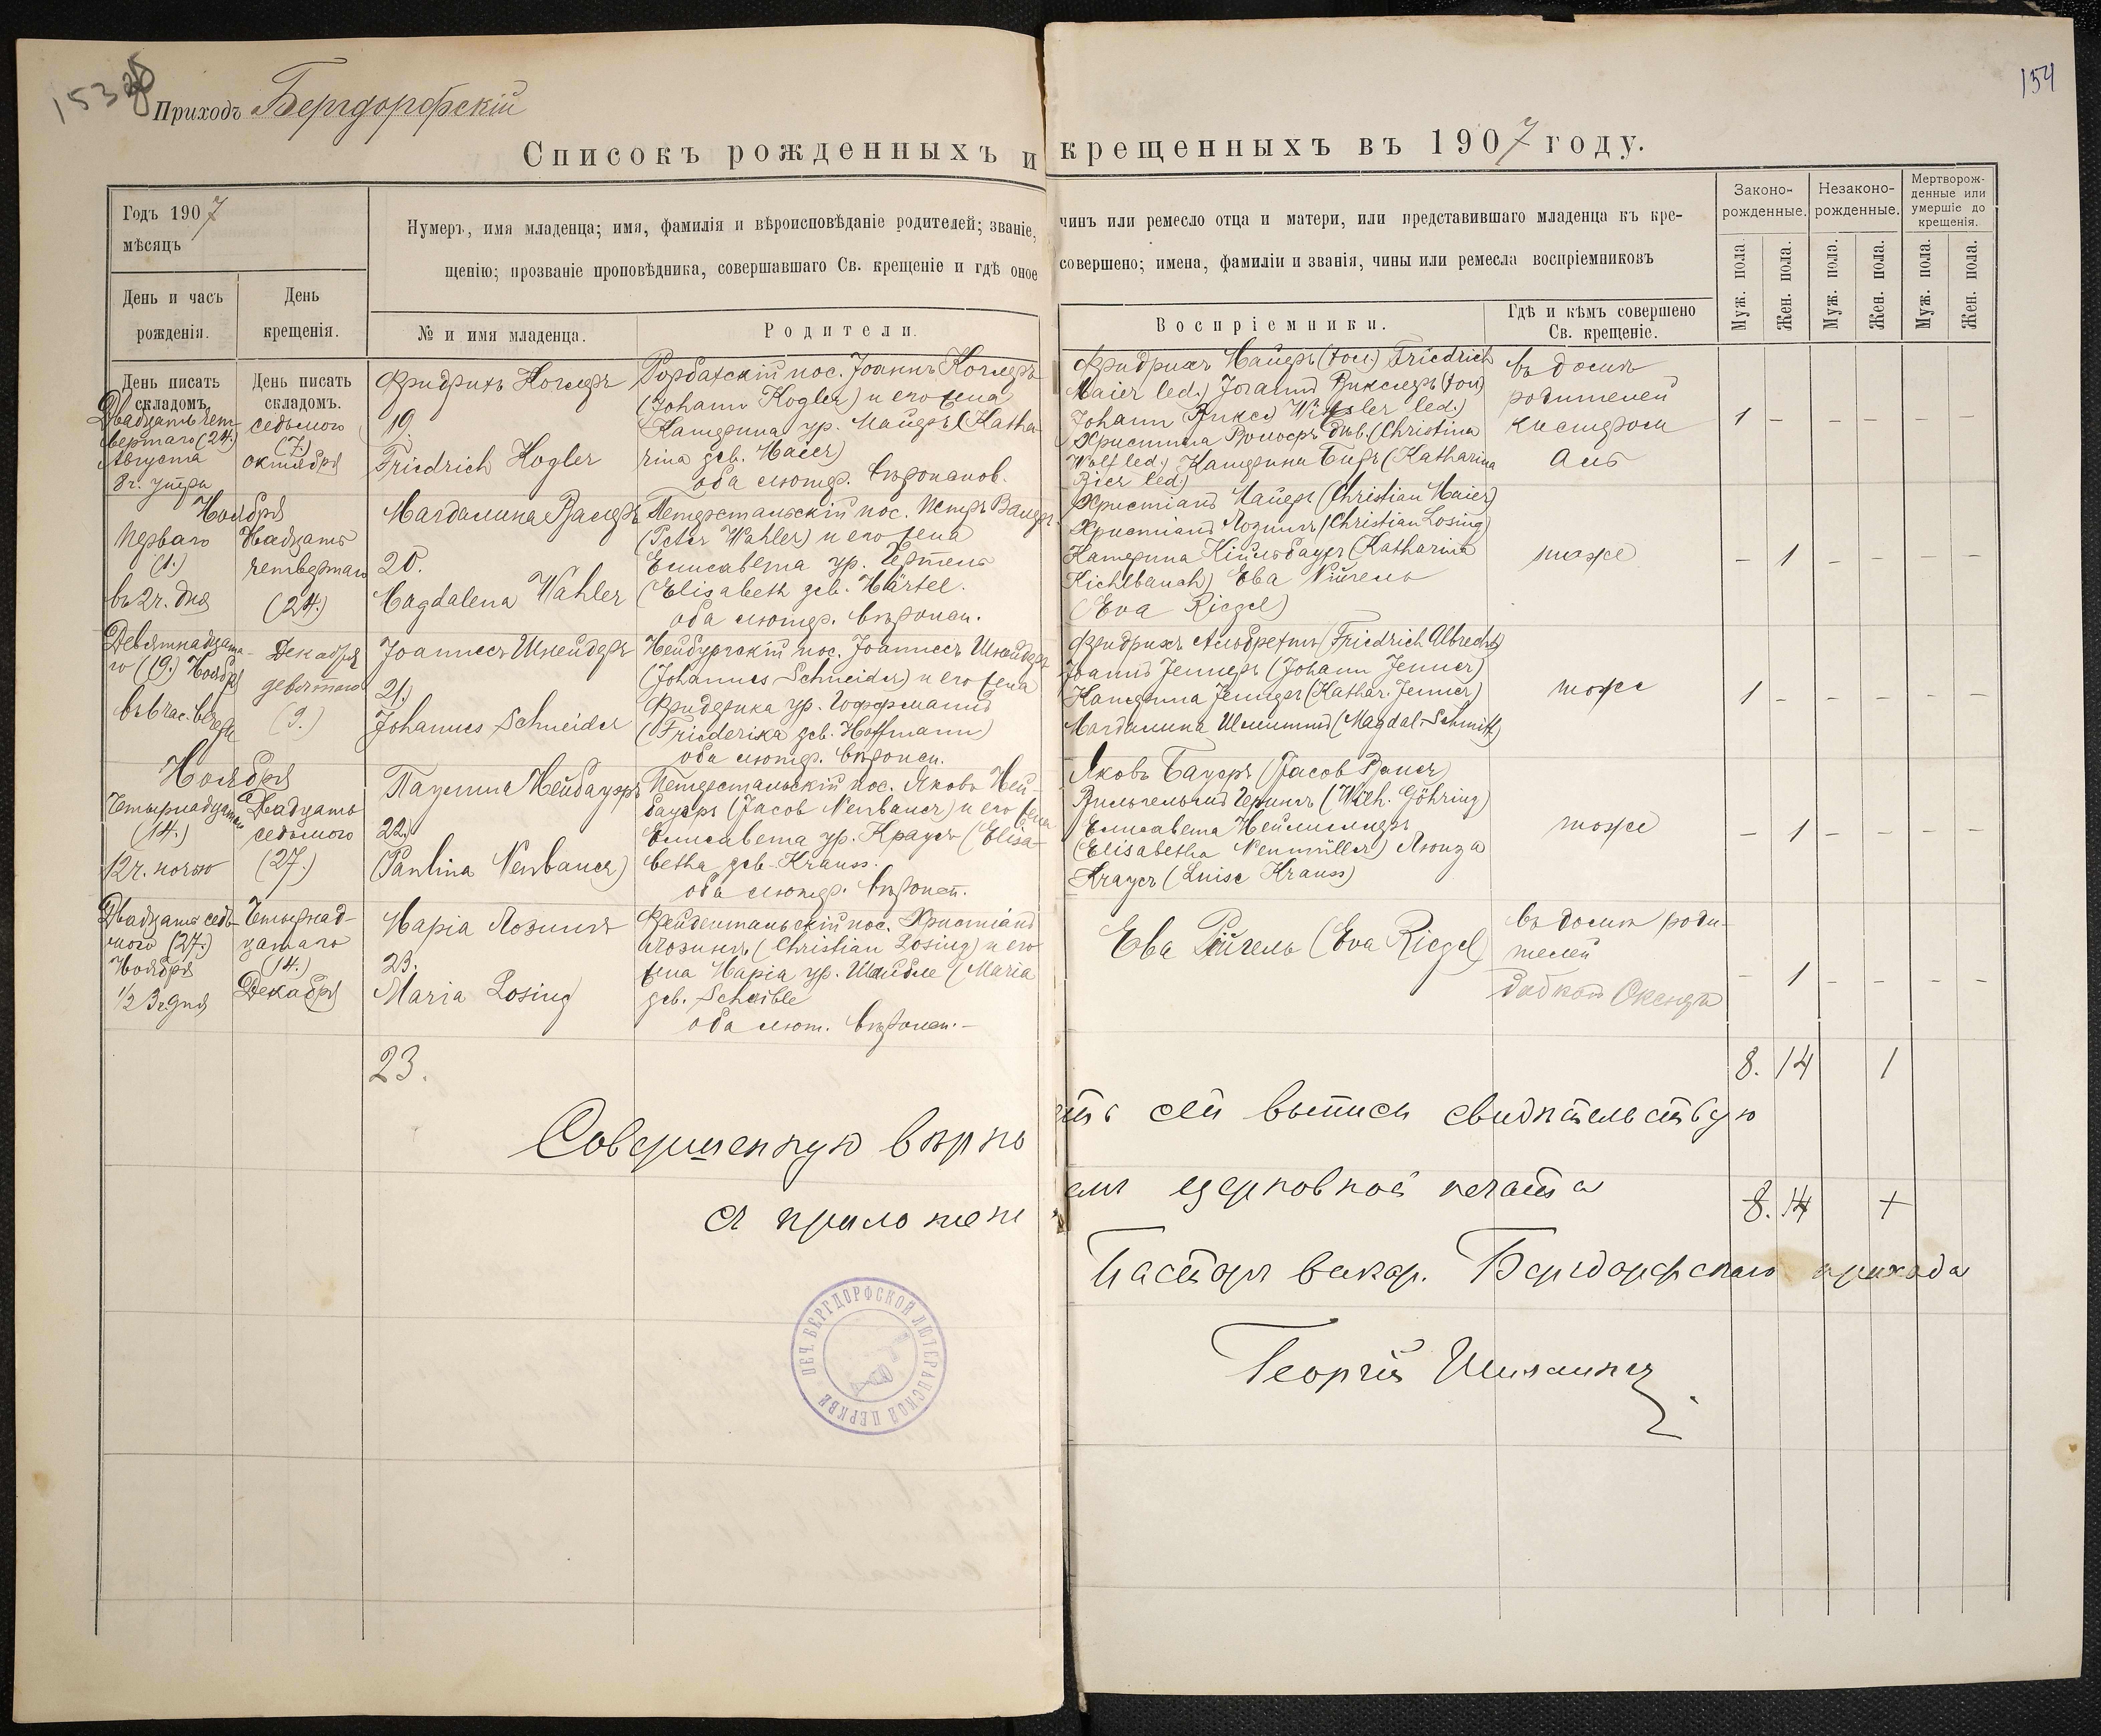 153
154
Приходъ Бергдорфскій
Списокъ рожденныхъ и крещенныхъ въ 1907 году.
Годъ 1907
мѣсяцъ
День и часъ
рожденія.
День
крещенія.
Нумеръ, имя младенца; имя, фамилія и вѣроисповѣданіе родителей; званіе, чинъ или ремесло отца и матери, или представившаго младенца къ кре-
щенію; прозваніе проповѣдника, совершавшаго Св. крещеніе и гдѣ оное совершено; имена, фамиліи и званія, чины или ремесла воспріемниковъ
№ и имя младенца.
Родители.
Воспріемники.
Гдѣ и кѣмъ совершено
Св. крещеніе.
Законо-
рожденные.
Незаконо-
рожденные.
Мертворож-
денные или
умершіе до
крещенія.
Муж. пола.
Жен. пола.
Муж. пола.
Жен. пола.
Муж. пола.
Жен. пола.
День писать
складомъ.
День писать
складомъ.
Двадцать чет-
вертаго (24.)
Августа
8 ч. утра
седьмого
(7.)
октября
Фридрихъ Коглеръ
19.
Friedrich Kogler
Рорбахскій пос. Іоаннъ Коглеръ
(Johann Kogler) и его жена
Катерина ур. Майеръ (Katha-
rina geb. Maier)
оба лютер. вѣроиспов.
Фридрихъ Майеръ (хол.) Friedrich
Maier led.) Іоганнъ Викслеръ (хол)
Johann Wixler led.)
Христина Вольфъ дѣв. (Christina
Wolf led.) Катерина Биръ (Katharina
Bier led.)
въ домѣ
родителей
кистеромъ
1 - - - - -
Ноября
Перваго
(1.)
въ 2 ч. дня
Двадцать
четвертаго
(24.)
Магдалина Валеръ
20.
Magdalena Wahler
Петерстальскій пос. Петръ Валеръ
(Peter Wahler) и его жена
Елисавета ур. Гертель
(Elisabeth geb. Härtel.
оба лютер. вѣроисп.
Христіанъ Майеръ (Christian Maier)
Христіанъ Лозингъ (Christian Losing)
Катерина Кільбаухъ (Katharina
Kichlbauch) Ева Ригель
(Eva Riegel)
тоже
- 1 - - - -
Девятнадцата-
го (19.) Ноября
Декабря
девятаго
(9.)
Іоаннесъ Шнейдеръ
21.)
Johannes Schneider
Нейбургскій пос. Іоаннесъ Шнейдеръ
(Johannes Schneider) и его жена
Фридерика ур. Гоффманнъ
(Friederika geb. Hoffmann)
оба лютер. вѣроисп.
Фридрихъ Альбрехтъ (Friedrich Albrecht)
Іоаннъ Jеннеръ (Johann Jenner)
Катерина Jеннеръ (Kathar. Jenner)
Магдалина Шмиттъ (Magdal. Schmitt)
тоже
1 - - - - -
Ноября
Четырнадцатаго
(14.)
12 ч. ночью
Двадцать
седьмого
(27.)
Паулина Нейбауэръ
22.)
(Paulina Neubauer)
Петерстальскій пос. Яковъ Ней-
бауеръ (Jacob Neubauer) и его жена
Елисавета ур. Краусъ (Elisa-
betha geb. Krauss.
оба лютер. вѣроисп.
Яковъ Бауеръ (Jacob Bauer)
Вильгельмъ Герингъ (Wilh. Göhring)
Елисавета Неймиллеръ
(Elisabetha Neumüller) Люиза
Краусъ (Luise Krauss)
тоже
- 1 - - - -
Двадцать седь-
мого (27.)
Ноября
1/2 3 ч. дня
Четырнад-
цатаго
(14.)
Декабря
Марія Лозингъ
23.
Maria Losing
Фрейдентальскій пос. Христіанъ
Лозингъ (Christian Losing) и его
жена Марія ур. Шейбле (Maria
geb. Scheible
оба лют. вѣроисп.-
Ева Ригель (Eva Riegel)
въ домѣ роди-
телей
- 1 - - - -
23.
8. 14 1
Совершенную вѣрность сей выписи свидѣтельствую
съ приложеніемъ церковной печати
8. 14 1
Пасторъ викар. Бергдорфскаго прихода
Георгій
ПЕЧ. БЕРГДОРФСКОЙ ЛЮТЕРАНСКОЙ ЦЕРКВИ